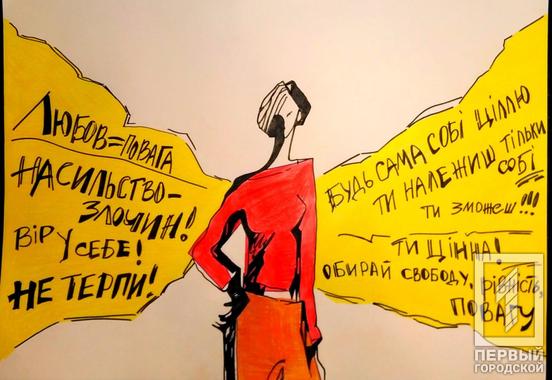 ЛЮБОВ=ПОВАГА
НАСИЛЬСТВО-
ЗЛОЧИН!
ВІР У СЕБЕ!
НЕ ТЕРПИ!
БУДЬ САМА СОБІ ЦІЛЛЮ
ТИ НАЛЕЖИШ ТІЛЬКИ
СОБІ
ТИ ЗМОЖЕШ!!!
ТИ ЦІННА!
ОБИРАЙ СВОБОДУ, РІВНІСТЬ,
ПОВАГУ
ПЕРВЫЙ
ГОРОДСКОЙ